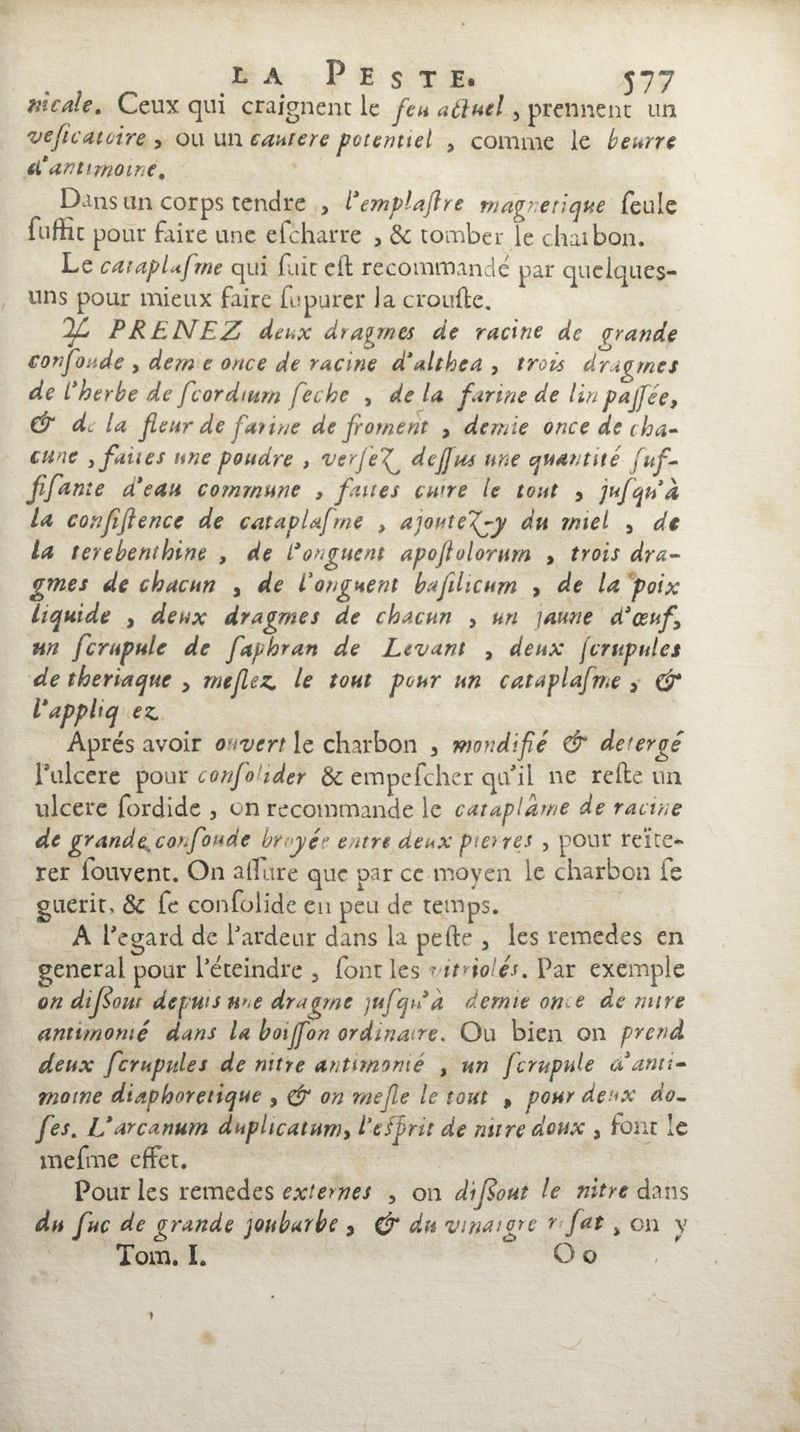 LA PESTE. 577
nicale. Ceux qui craignent le feu actuel, prennent un
veſicatoire, ou un cautere potentiel, comme le beurre
d'antimoine.
Dans un corps tendre, l'emplaſtre magnetique ſeule
ſuffit pour faire une eſcharre, & tomber le chaibon.
Le cataplaſme qui ſuit eſt recommandé par quelques-
uns pour mieux faire ſupurer la crouſte.
♃ PRENEZ deux dragmes de racine de grande
conſoude, demie once de racine d'althea, trois dragmes
de l'herbe de ſcordium ſeche, de la farine de lin paſſée,
& de la fleur de farine de froment, demie once de cha-
cune, faites une poudre, verſeZ deſſus une quantité ſuf-
fiſante d'eau commune, faites cuire le tout, juſqu'à
la conſiſtence de cataplaſme, ajouteZ-y du miel, de
la terebenthine, de l'onguent apoſtolorum, trois dra-
gmes de chacun, de l'onguent baſilicum, de la poix
liquide, deux dragmes de chacun, un jaune d'œuf,
un ſcrupule de ſaphran de Levant, deux ſcrupules
de theriaque, meſlez le tout pour un cataplaſme, &
l'appliq ez
Aprés avoir ouvert le charbon, mondifié & detergé
l'ulcere pour conſolider & empeſcher qu'il ne reſte un
ulcere ſordide, on recommande le cataplâme de racine
de grande conſoude broyée entre deux pierres, pour reïte-
rer ſouvent. On aſſure que par ce moyen le charbon ſe
guerit, & ſe conſolide en peu de temps.
A l'egard de l'ardeur dans la peſte, les remedes en
general pour l'éteindre, ſont les vitriolés. Par exemple
on diſſout depuis une dragme juſqu'à demie once de nitre
antimonié dans la boiſſon ordinaire. Ou bien on prend
deux ſcrupules de nitre antimonié, un ſcrupule d'anti-
moine diaphoretique, & on meſle le tout, pour deux do-
ſes. L'arcanum duplicatum, l'eſprit de nitre doux, font le
meſme effet.
Pour les remedes externes, on diſſout le nitre dans
du ſuc de grande joubarbe, & du vinaigre roſat, on y
Tom. I. Oo